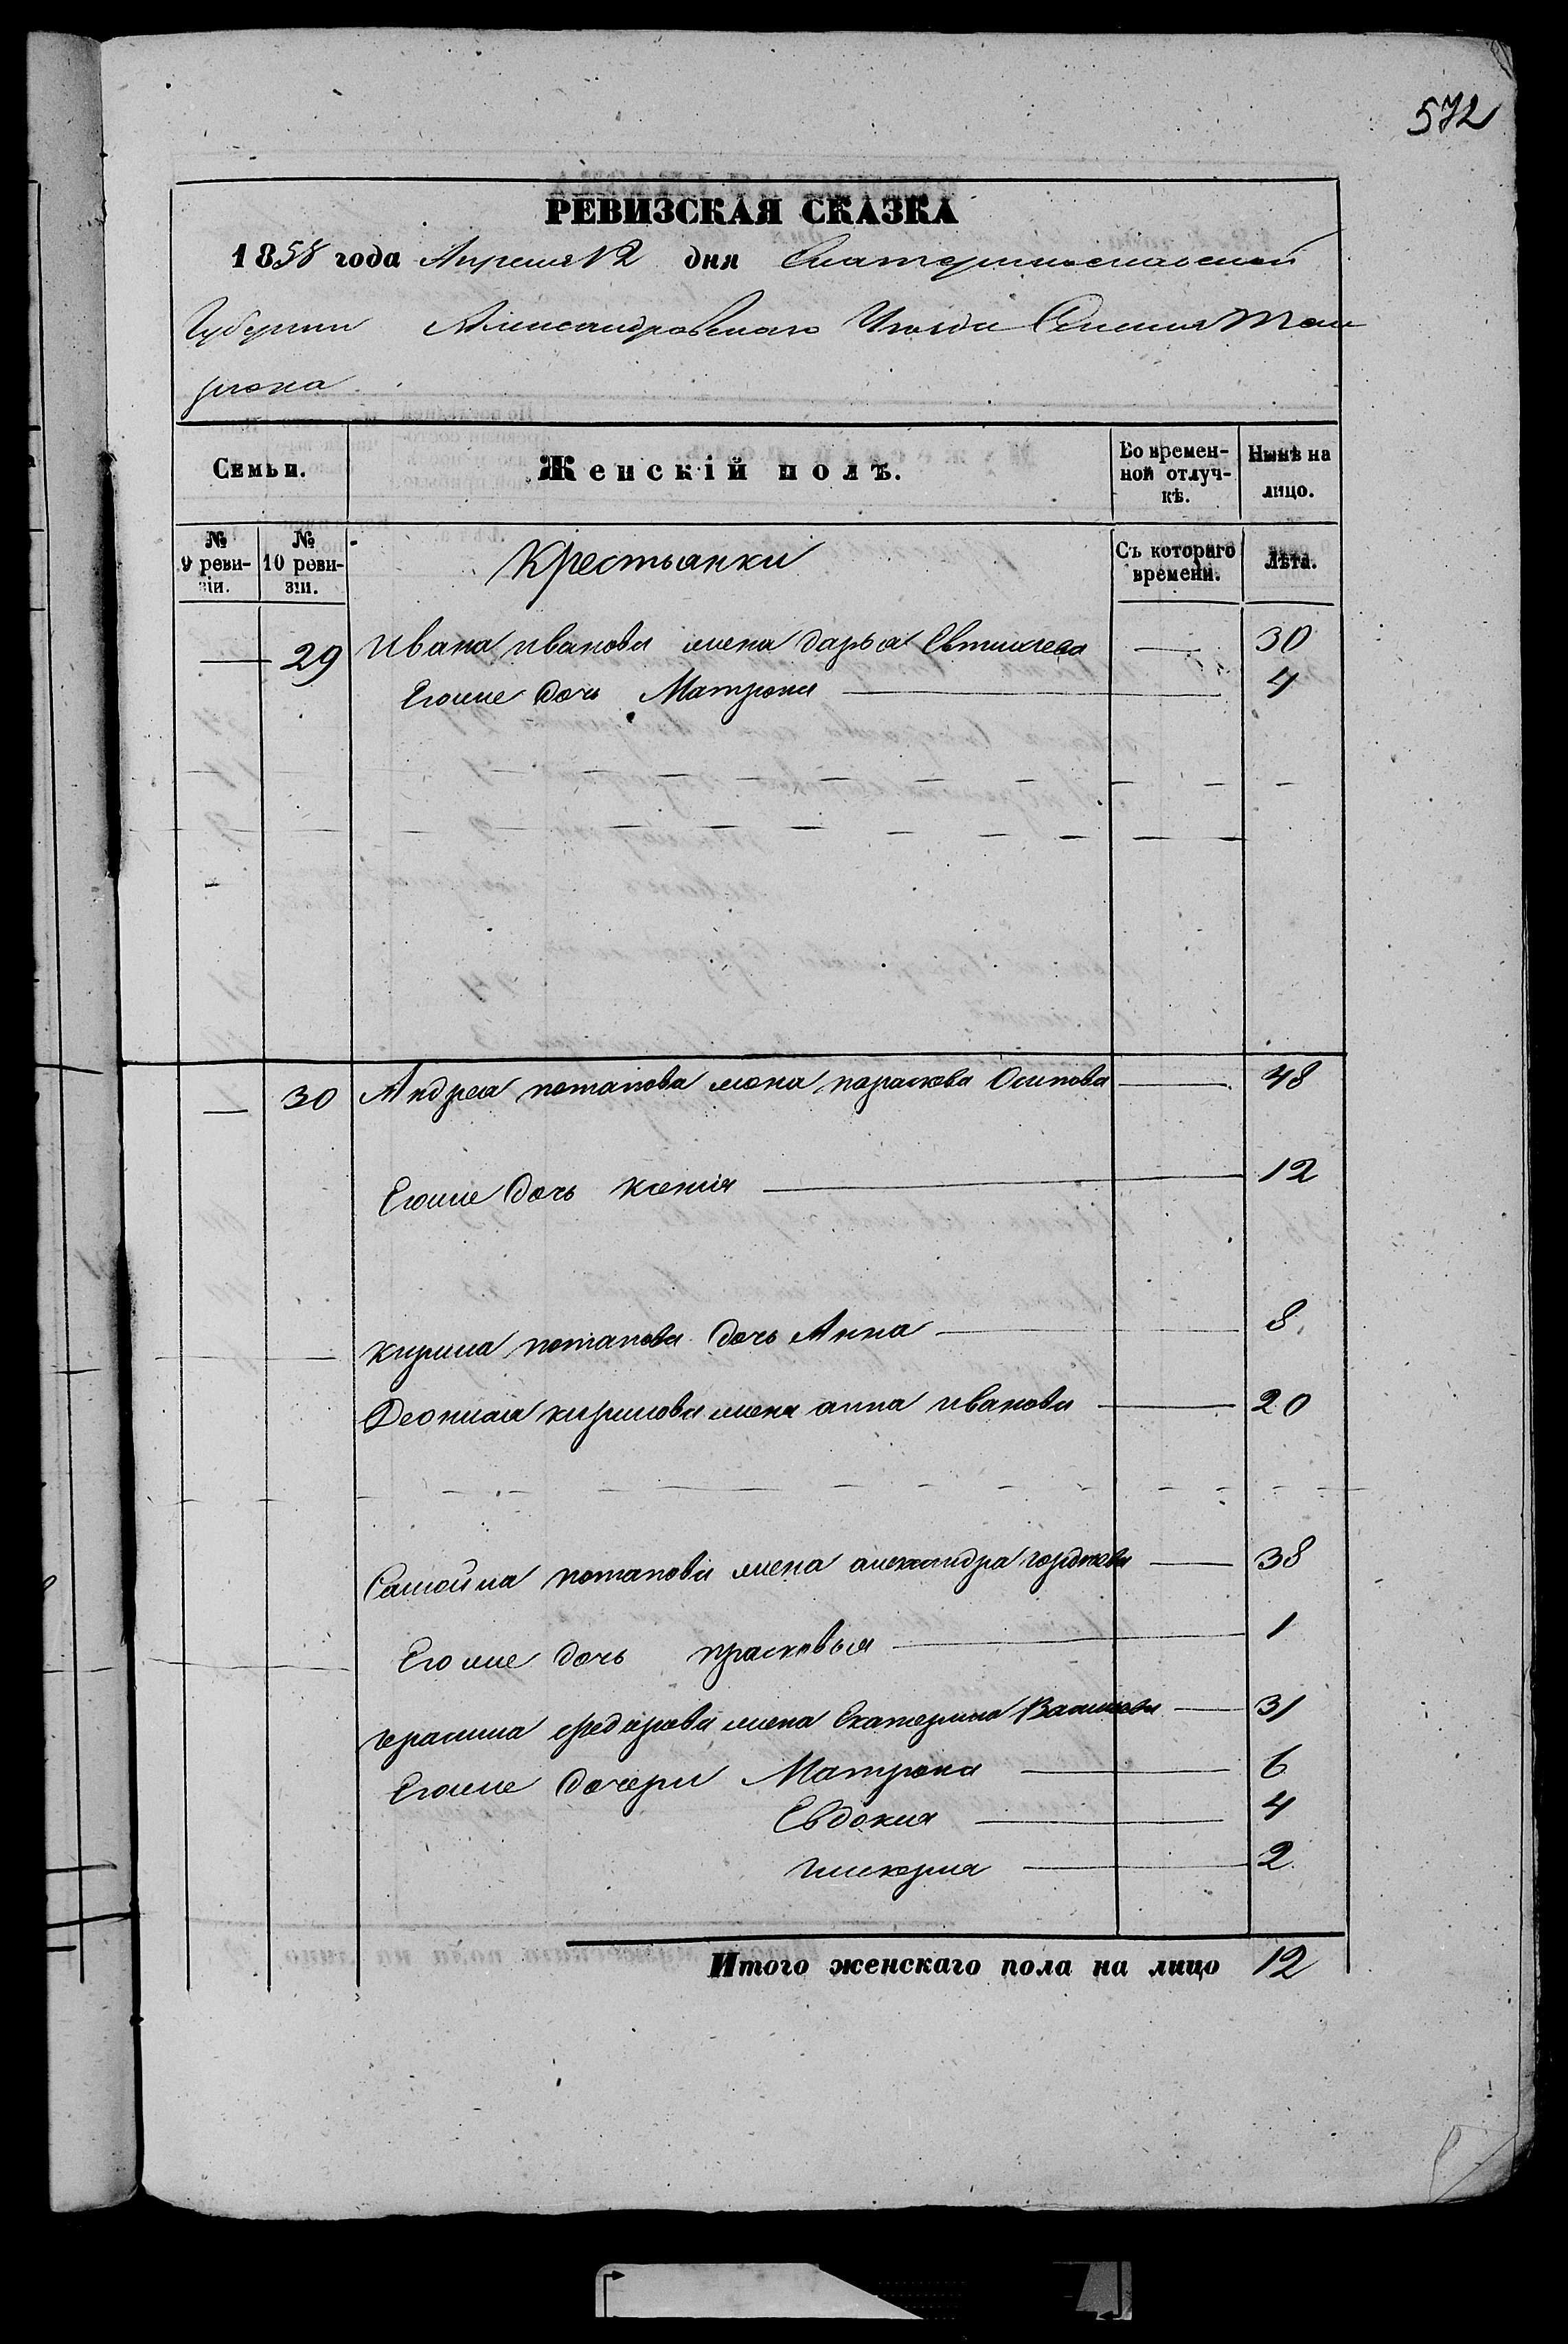 572
РЕВИЗСКАЯ СКАЗКА
1858 года Апреля 12 дня Екатеринославской
Губернии Александровскаго Уезда Селения
Семьи.
Женскій полъ.
Во времен-
ной отлуч-
кѣ.
Нынѣ на
лицо.
№
9 реви-
зіи.
№
10 реви-
зіи.
Крестьянки
Съ котораго
времени.
Лѣта.
— 29 Ивана иванова жена дарья — 30
Егоже дочь Матрона — 4
— 30 Андрея потапова жена параскева Осипова — 48
Егоже дочь ксения — 12
кирила потапова дочь Анна — 8
кирилова жена анна иванова — 20
Самойла потапова жена александра гордеева — 38
Егоже дочь прасковья — 1
герасима федорова жена Екатерина — 31
Егоже дочери Матрона — 6
Евдокия — 4
гликерия — 2
Итого женскаго пола на лицо 12